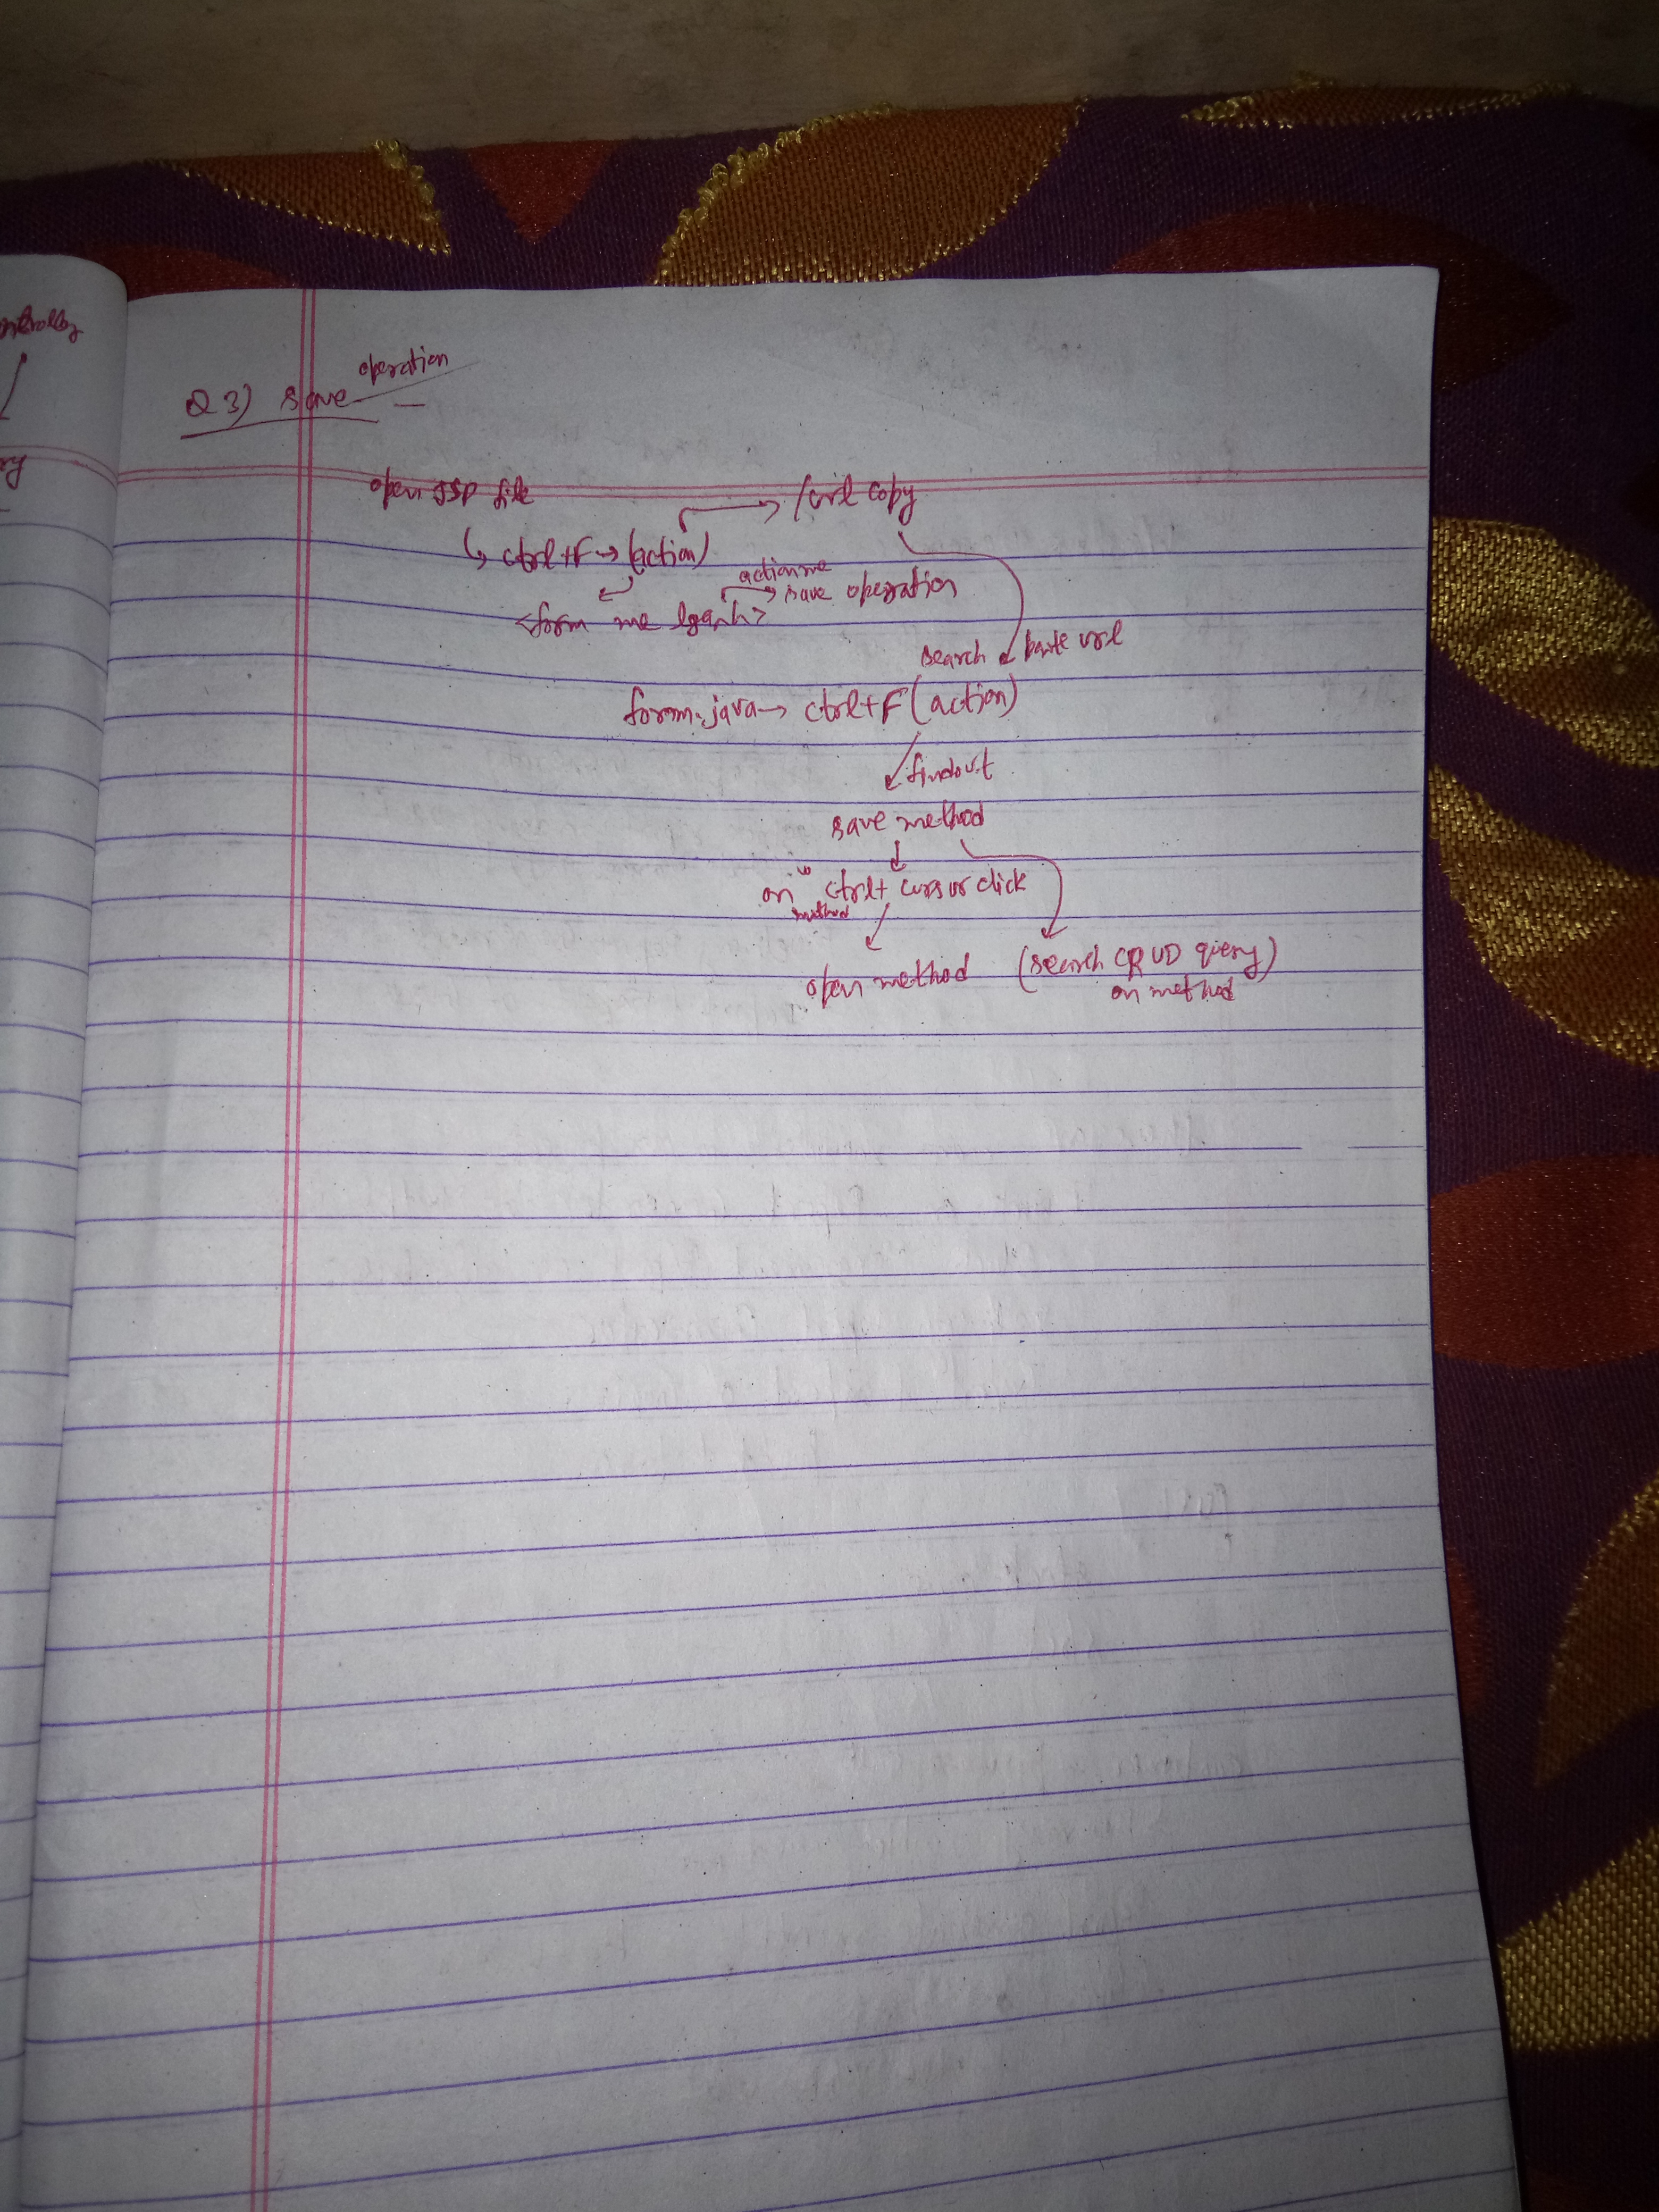 ntroller
ry
Q 3) save operation
open JSP file
/url copy
↳ ctrl+F → (action)
action me
<form me > → save operation
search paste url
form.java → ctrl+F (action)
findout
save method
on method ctrl+ cursor click
open method (search CRUD query)
on method